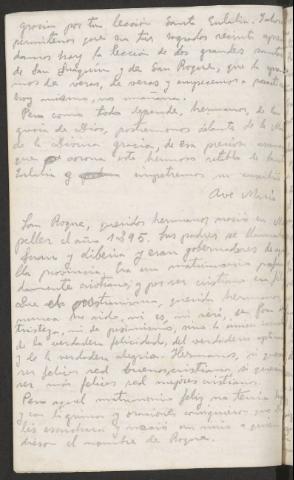 gracias por tu lección Santa Eulalia. Señor
permítenos que en tu sagrado recinto apren
damos hoy la lección de dos grandes santos
de San Joaquín y de San Roque, que la apren
mos de veras, de veras y empecemos a
hoy mismo, no mañana.
Pero como todo depende, hermanos, de la
gracia de Dios, postrémonos delante de la
de la Divina gracia, de esa preciosa
que corona este hermoso retablo de
Eulalia y impetremos su auxilio
Ave María
San Roque, queridos hermanos nació en
peller el año 1295. Sus padres se llamaban
Juan y Liberia y eran gobernadores de aque
lla provincia. Era un matrimonio profun
damente cristiano, y por ser cristiano era
Que el cristianismo, querido hermanos
nunca ha sido, ni es, ni será, en fon de
tristeza, ni de pesimismo, sino la única
de la verdadera felicidad, del verdadero optimis
y de la verdadera alegría. Hermanos, si queréis
ser felices sed buenos cristianos, si queréis
ser más felices sed mejores cristianos.
Pero aquel matrimonio feliz no tenía
y con lágrimas y oraciones consiguieron que
les escuchara y nació un niño a quien
dieron el nombre de Roque.